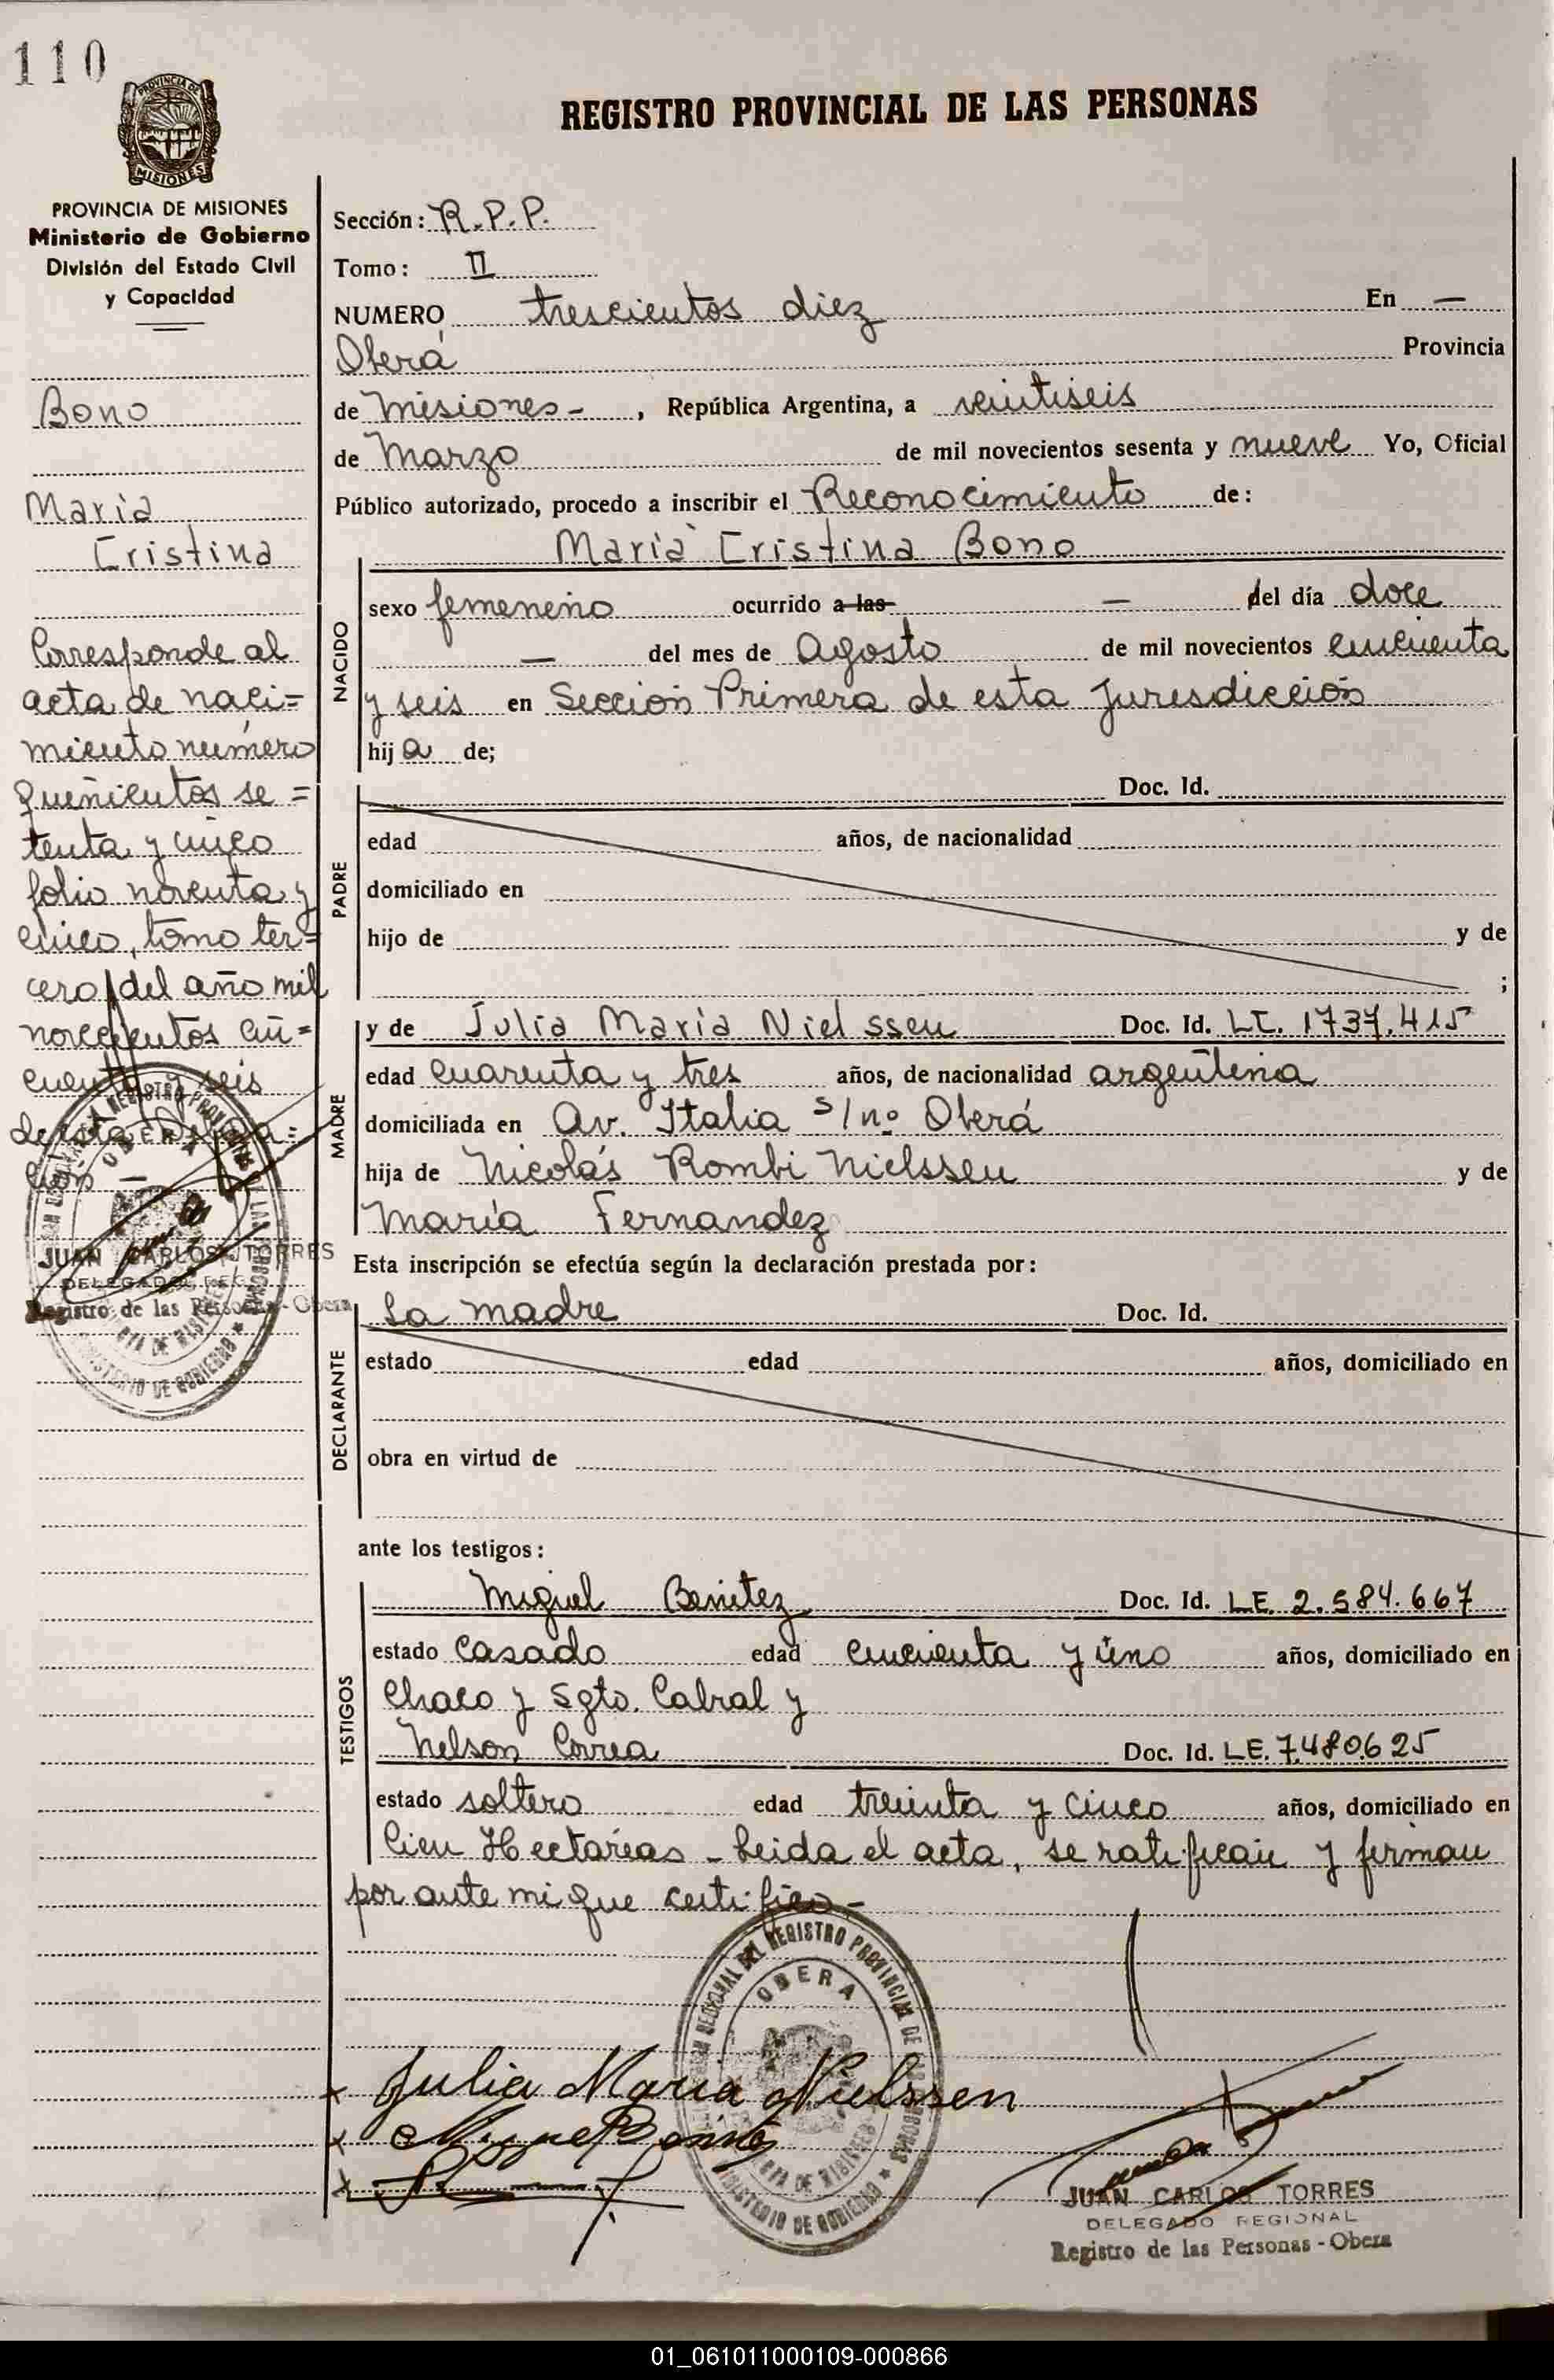 110
PROVINCIA DE
MISIONES
REGISTRO PROVINCIAL DE LAS PERSONAS
PROVINCIA DE MISIONES
Ministerio de Gobierno
División del Estado Civil
y Capacidad
Bono
Maria
Cristina
Corresponde al
acta de naci=
miento numero
quinientos se=
tenta y cinco
folio noventa y
cinco, tomo ter=
cero del año mil
novecientos cin=
cuenta y seis
de esta
JUAN CARLOS TORRES
DELEGADO REG
Registro de las Personas - Obera
Sección: R.P.P.
Tomo: II
NUMERO trescientos diez En —
Oberá Provincia
de Misiones - , República Argentina, a veintiseis
de Marzo de mil novecientos sesenta y nueve Yo, Oficial
Público autorizado, procedo a inscribir el Reconocimiento de:
Maria Cristina Bono
NACIDO
sexo femenino ocurrido a las — del día doce
— del mes de Agosto de mil novecientos cincuenta
y seis en Sección Primera de esta Jurisdicción
hij a de;
PADRE
Doc. Id.
edad años, de nacionalidad
domiciliado en
hijo de y de
;
MADRE
y de Julia Maria Nielssen Doc. Id. LC. 1737.415
edad cuarenta y tres años, de nacionalidad argentina
domiciliada en Av. Italia s/nº Oberá
hija de Nicolás Rombi Nielssen y de
María Fernandez
Esta inscripción se efectúa según la declaración prestada por:
DECLARANTE
La madre Doc. Id.
estado edad años, domiciliado en
obra en virtud de
ante los testigos:
TESTIGOS
Miguel Benitez Doc. Id. LE. 2.584.667
estado casado edad cincuenta y uno años, domiciliado en
Chaco y Sgto. Cabral y
Nelson Correa Doc. Id. LE. 7.480.625
estado soltero edad treinta y cinco años, domiciliado en
Cien Hectáreas - Leida el acta, se ratifican y firman
por ante mi que certifico -
REGISTRO PROVINCIAL DE LAS PERSONAS
OBERA
MINISTERIO DE GOBIERNO
Julia Maria Nielssen
Miguel Benitez
JUAN CARLOS TORRES
DELEGADO REGIONAL
Registro de las Personas - Obera
01_061011000109-000866